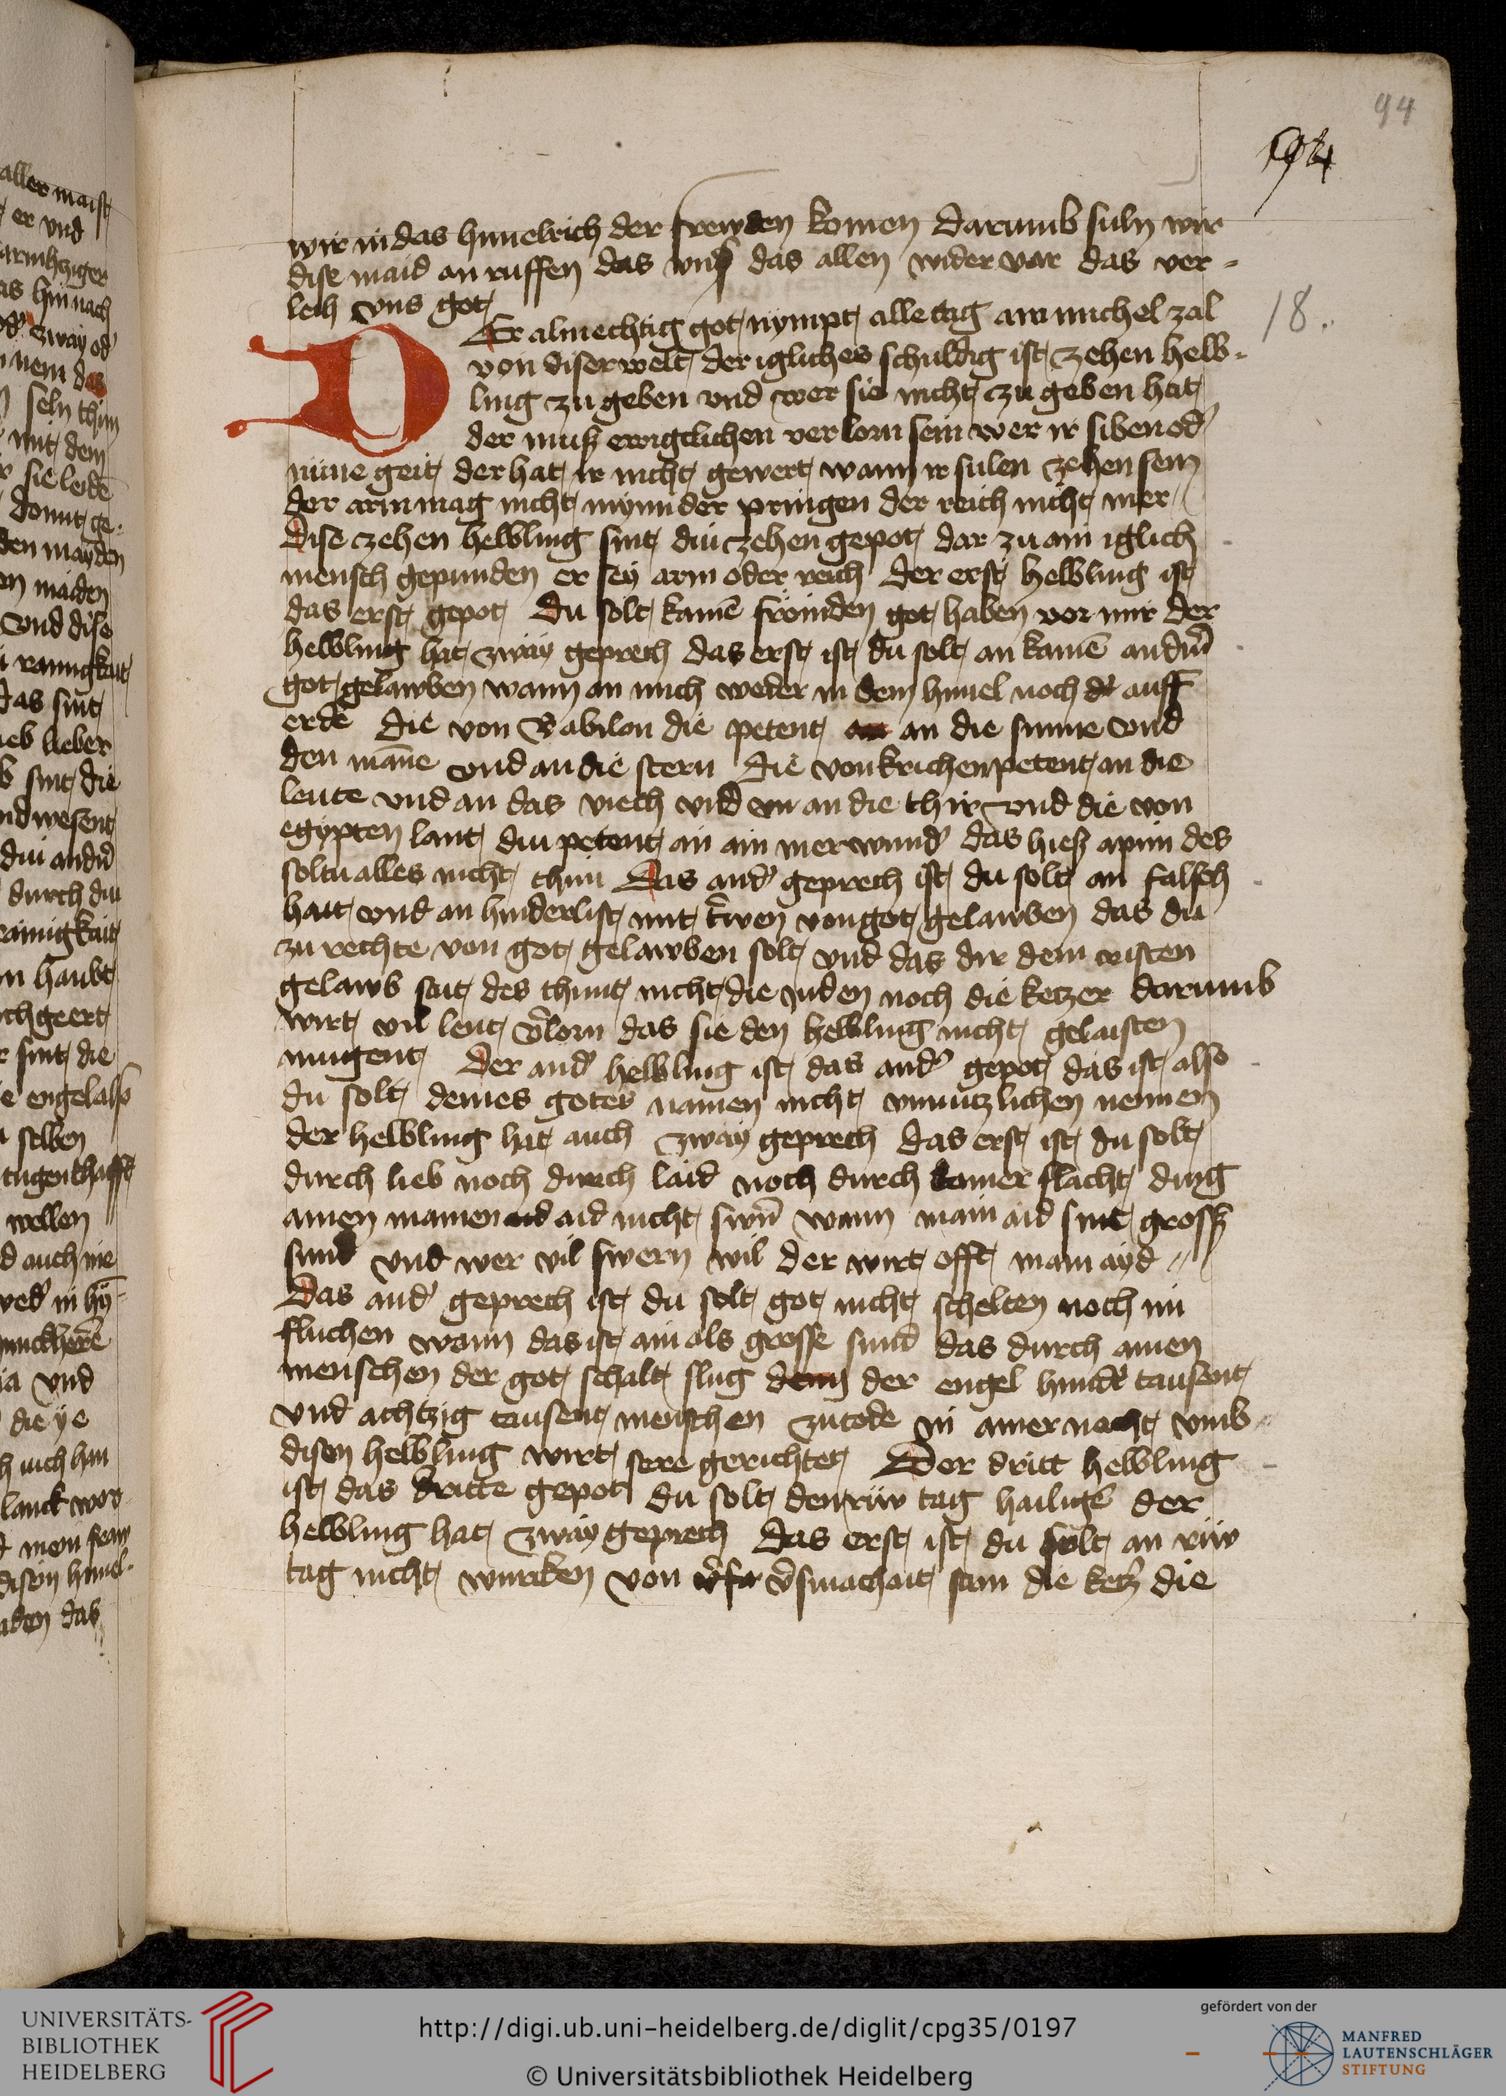 94
94
wir in das himelrich der frewden komen Darumb suln wir
dise maid an ruffen das vnß das allen wider var das ver-
leih vns got
18.
DEr almechtig got nympt alle tag ain michel zal
von diser welt der iglicher schuldig ist zehen helb-
ling zu geben vnd wer sie nicht zu geben hat
der muß ewigclichen verlorn sein wer ir siben od'
nüne geit der hat ir nicht gewert wann ir sulen zehen sein
der arm mag nicht mynnder pringen der reich nicht mer
Dise zehen helbling sint diu zehen gepot dar zu ain iglich
mensch gepunden er sey arm oder reich Der erst helbling ist
das erst gepot Du solt kainē frömden got haben vor mir der
helbling hat zway geprech das erst ist du solt an kainē andern̄
got gelawben wann an mich weder in dem himel noch auff
erdē die von Babilon die petent an die sunne vnd
den mane vnd an die stern Die von krichen petent an die
leute vnd an das viech vnd an die thir vnd die von
egypten lant diu petent an ain merwund' das hieß apim des
soltu alles nicht thun Das and' geprech ist du solt an falsch
hait vnd an hinderlist mit trwen von got gelawben das du
zu rechte von got gelawben solt vnd das dir dem cristen
gelawb seit des thunt nicht die juden noch die ketzer darumb
wirt vil leut v'lorn das sie den helbling nicht gelaisten
mugent Der and' helbling ist das and' gepot das ist also
du solt deines gotes namen nicht vnnutzlichen nennen
der helbling hat auch zway geprech das erst ist du solt
durch lieb noch durch laid noch durch kainer slacht ding
ainen mainen aid nicht swern̄ wann main aid sint grosß
sund vnd wer vil swern wil der wirt offt main ayd
Das and' geprech ist du solt got nicht schelten noch im
fluchen wann das ist ain als grosse sund das durch ainen
menschen der got schalt slug der engel hundert tausent
vnd achtzig tausent menschen zu tode in ainer nacht vmb
disen helbling wirt sere gerichtet Der dritt helbling
ist das dritte gepot du solt den rüw tag hailigē der
helbling hat zway geprech das erst ist du solt an rüw
tag nicht wurcken von v'smachait sam die ketz' die
UNIVERSITÄTS-
BIBLIOTHEK
HEIDELBERG
http://digi.ub.uni-heidelberg.de/diglit/cpg35/0197
© Universitätsbibliothek Heidelberg
gefördert von der
MANFRED
LAUTENSCHLÄGER
STIFTUNG